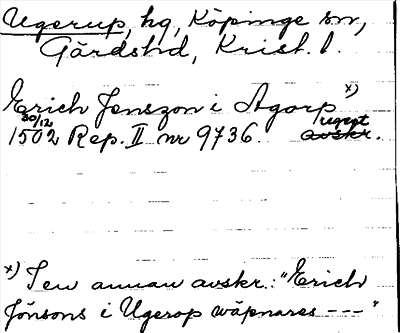 Ugerup, hg, Köpinge sn,
Gärdshd, Krist. l.
Erich Jenszon i Agorp x)
30/12
1502 Rep. II nr 9736. regest avskr.
x) I en annan avskr.: "Erich
Jönsons i Ugerop wäpnares ---"